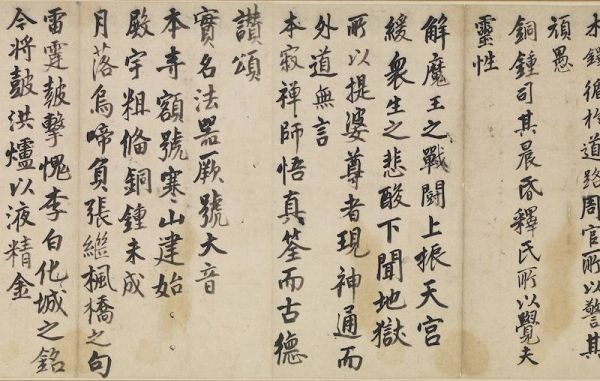 木鐸循於道路周官所以警其
頑愚
銅鍾司其晨昏釋氏所以覺夫
靈性
解魔王之戰鬪上振天宮
緩衆生之悲酸下聞地獄
所以提婆尊者現神通而
外道無言
本寂禪師悟真筌而古德
讃頌
實名法器厥號大音
本寺額號寒山建始
殿宇粗備銅鍾未成
月落烏啼負張繼楓橋之句
雷霆皷擊愧李白化城之銘
今將皷洪爐以液精金